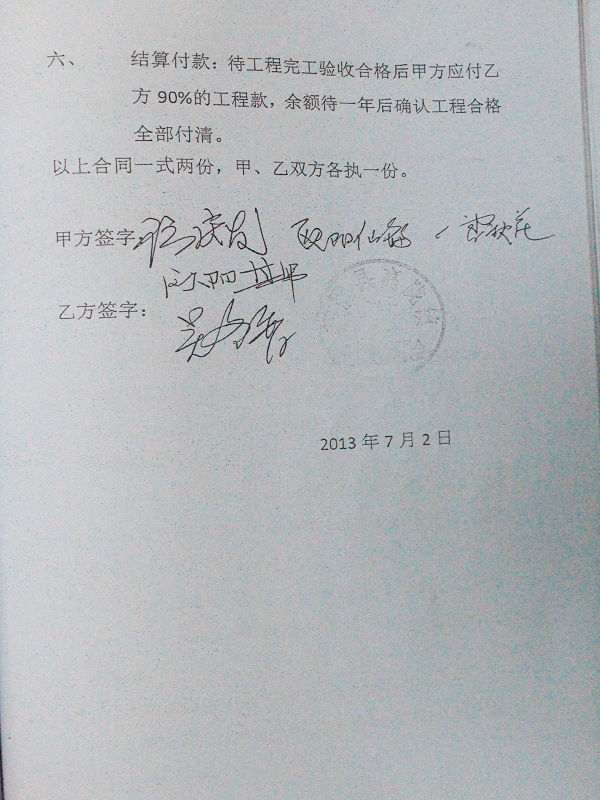 六、 结算付款：待工程完工验收合格后甲方应付乙
方 90%的工程款，余额待一年后确认工程合格
全部付清。
以上合同一式两份，甲、乙双方各执一份。
甲方签字：
乙方签字：
2013 年 7 月 2 日